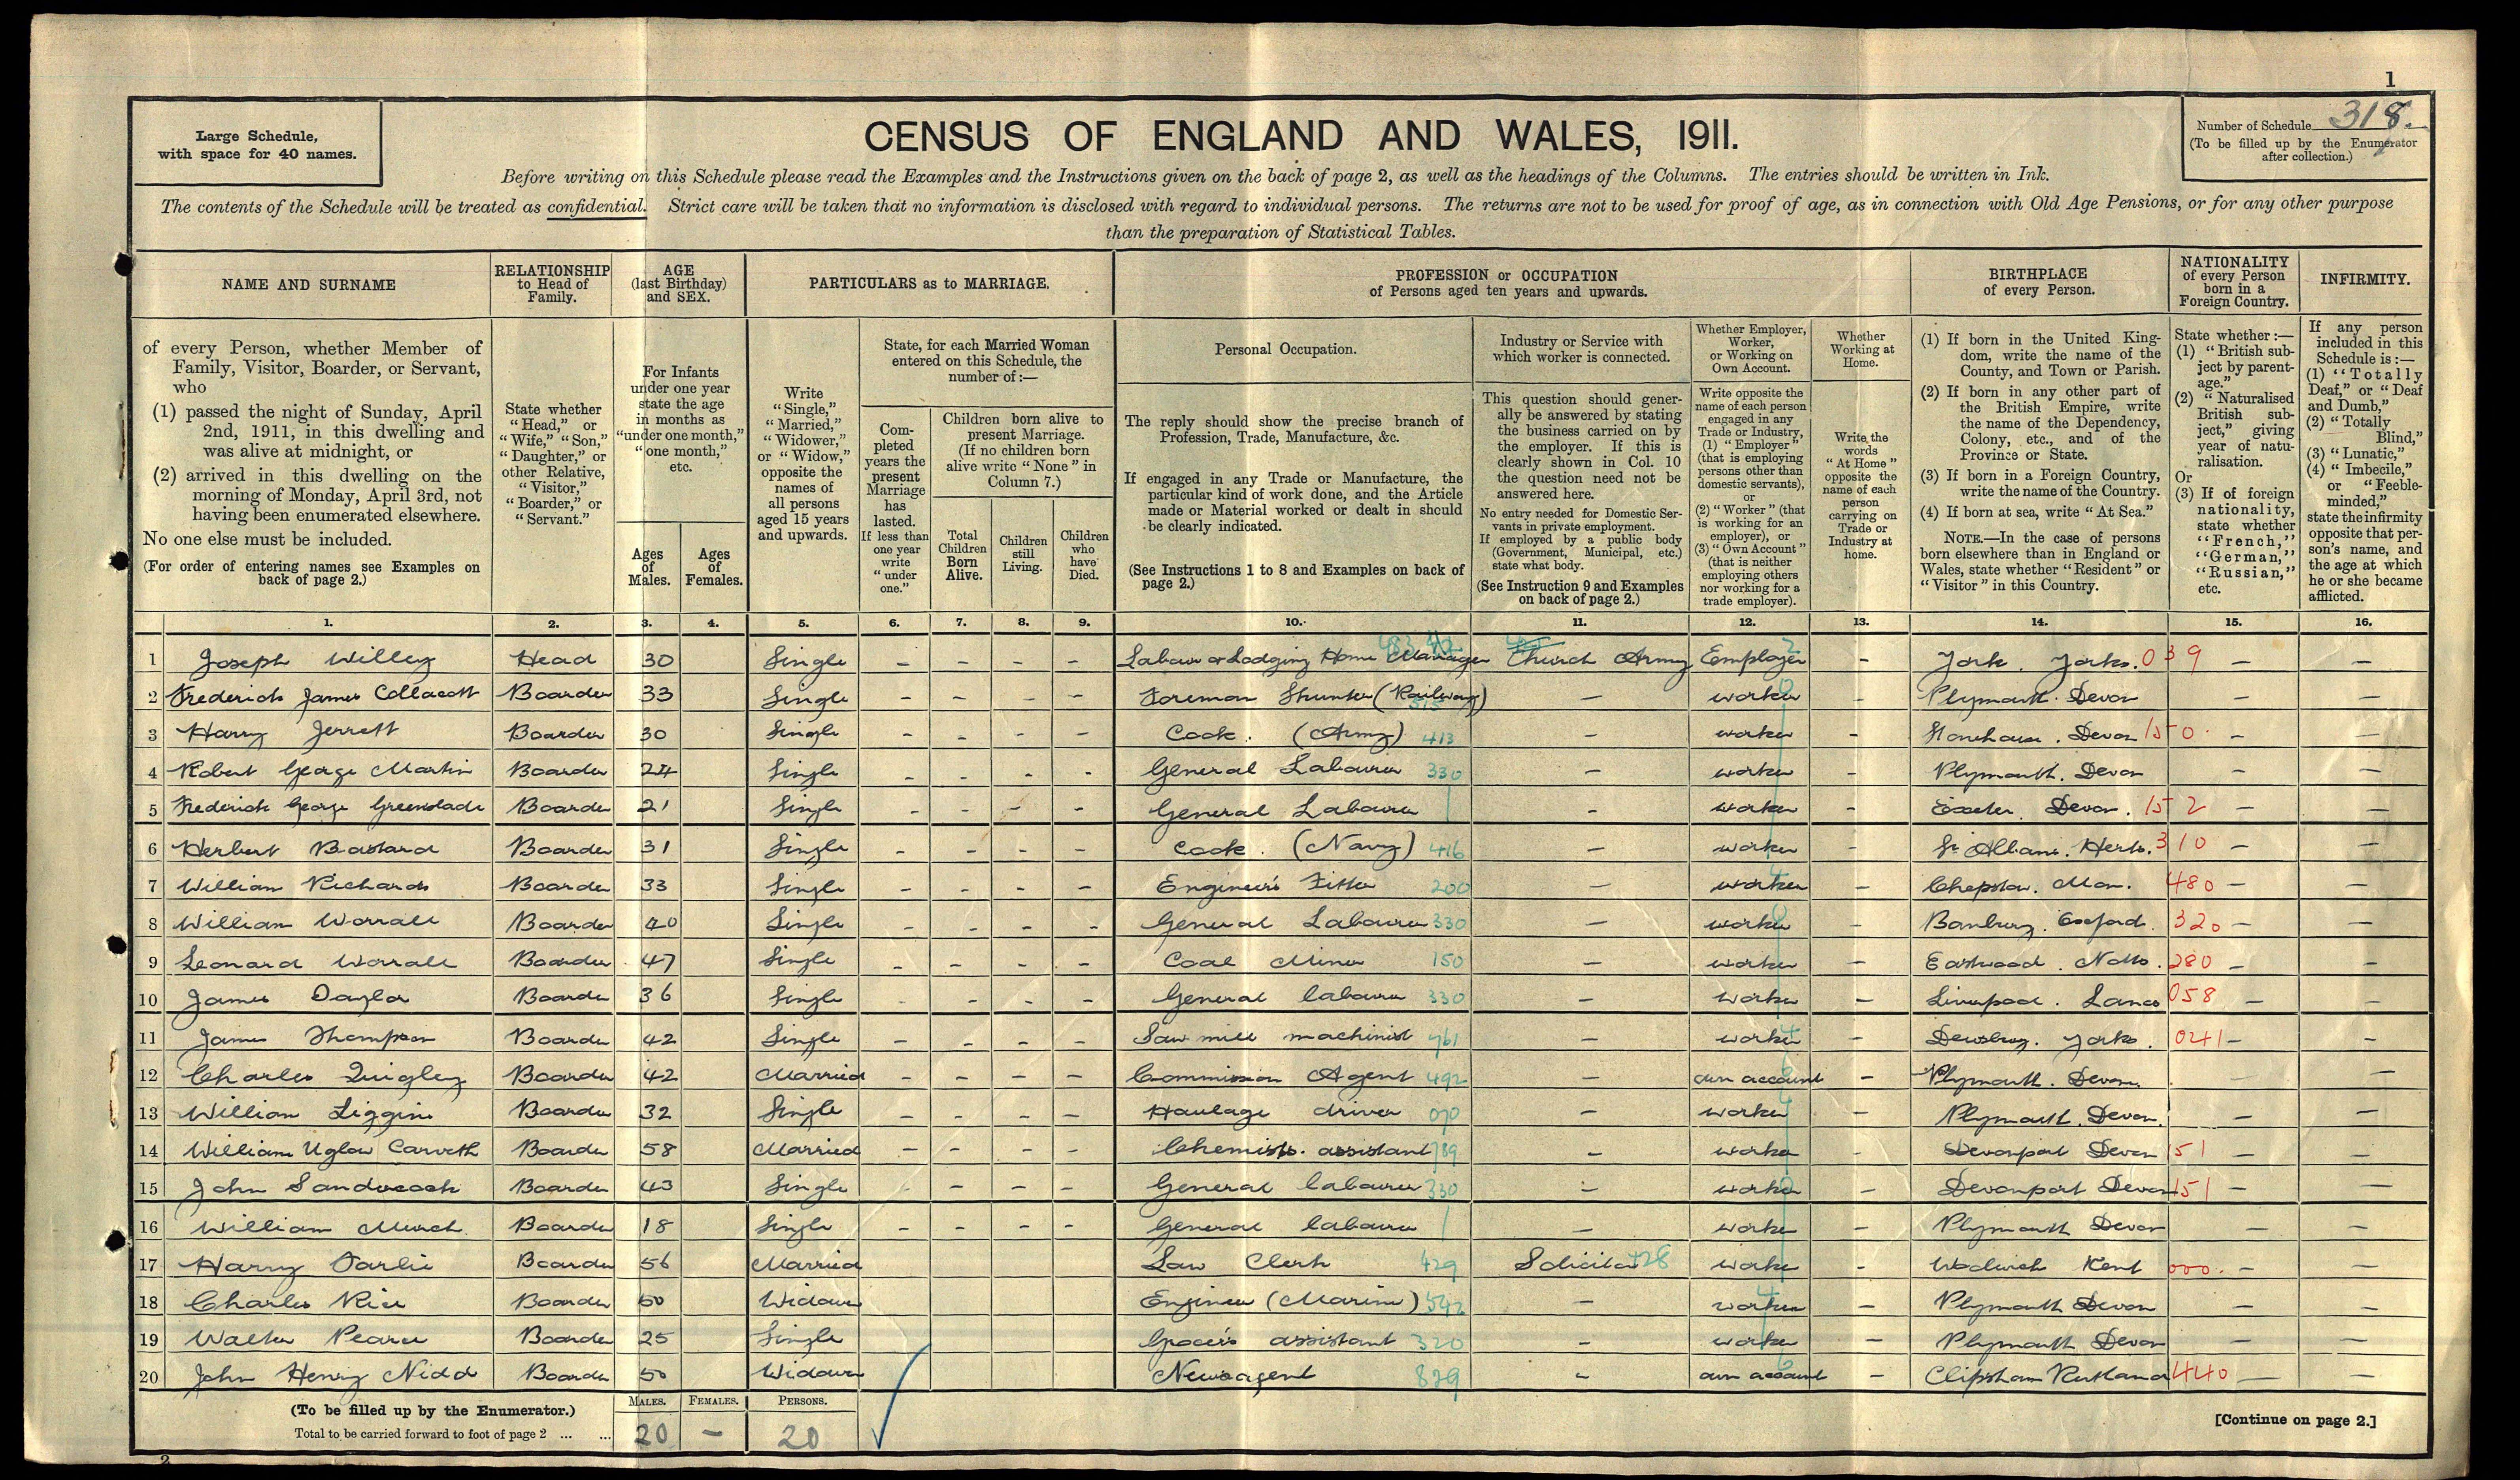 1
Large Schedule,
with space for 40 names.
CENSUS OF ENGLAND AND WALES, 1911.
Number of Schedule 318.
(To be filled up by the Enumerator
after collection.)
Before writing on this Schedule please read the Examples and the Instructions given on the back of page 2, as well as the headings of the Columns. The entries should be written in Ink.
The contents of the Schedule will be treated as confidential. Strict care will be taken that no information is disclosed with regard to individual persons. The returns are not to be used for proof of age, as in connection with Old Age Pensions, or for any other purpose
than the preparation of Statistical Tables.
NAME AND SURNAME
RELATIONSHIP
to Head of
Family.
AGE
(last Birthday)
and SEX.
PARTICULARS as to MARRIAGE.
PROFESSION or OCCUPATION
of Persons aged ten years and upwards.
BIRTHPLACE
of every Person.
NATIONALITY
of every Person
born in a
Foreign Country.
INFIRMITY.
of every Person, whether Member of
Family, Visitor, Boarder, or Servant,
who
(1) passed the night of Sunday, April
2nd, 1911, in this dwelling and
was alive at midnight, or
(2) arrived in this dwelling on the
morning of Monday, April 3rd, not
having been enumerated elsewhere.
No one else must be included.
(For order of entering names see Examples on
back of page 2.)
State whether
"Head," or
"Wife," "Son,"
"Daughter," or
other Relative,
"Visitor,"
"Boarder," or
"Servant."
For Infants
under one year
state the age
in months as
"under one month,"
"one month,"
etc.
Ages
of
Males.
Ages
of
Females.
Write
"Single,"
"Married,"
"Widower,"
or "Widow,"
opposite the
names of
all persons
aged 15 years
and upwards.
State, for each Married Woman
entered on this Schedule, the
number of:—
Com-
pleted
years the
present
Marriage
has
lasted.
If less than
one year
write
"under
one."
Children born alive to
present Marriage.
(If no children born
alive write "None" in
Column 7.)
Total
Children
Born
Alive.
Children
still
Living.
Children
who
have
Died.
Personal Occupation.
The reply should show the precise branch of
Profession, Trade, Manufacture, &c.
If engaged in any Trade or Manufacture, the
particular kind of work done, and the Article
made or Material worked or dealt in should
be clearly indicated.
(See Instructions 1 to 8 and Examples on back of
page 2.)
Industry or Service with
which worker is connected.
This question should gener-
ally be answered by stating
the business carried on by
the employer. If this is
clearly shown in Col. 10
the question need not be
answered here.
No entry needed for Domestic Ser-
vants in private employment.
If employed by a public body
(Government, Municipal, etc.)
state what body.
(See Instruction 9 and Examples
on back of page 2.)
Whether Employer,
Worker,
or Working on
Own Account.
Write opposite the
name of each person
engaged in any
Trade or Industry,
(1) "Employer"
(that is employing
persons other than
domestic servants),
or
(2) "Worker" (that
is working for an
employer), or
(3) "Own Account"
(that is neither
employing others
nor working for a
trade employer).
Whether
Working at
Home.
Write the
words
"At Home"
opposite the
name of each
person
carrying on
Trade or
Industry at
home.
(1) If born in the United King-
dom, write the name of the
County, and Town or Parish.
(2) If born in any other part of
the British Empire, write
the name of the Dependency,
Colony, etc., and of the
Province or State.
(3) If born in a Foreign Country,
write the name of the Country.
(4) If born at sea, write "At Sea."
NOTE.—In the case of persons
born elsewhere than in England or
Wales, state whether "Resident" or
"Visitor" in this Country.
State whether:—
(1) "British sub-
ject by parent-
age."
(2) "Naturalised
British sub-
ject," giving
year of natu-
ralisation.
Or
(3) If of foreign
nationality,
state whether
"French,"
"German,"
"Russian,"
etc.
If any person
included in this
Schedule is:—
(1) "Totally
Deaf," or "Deaf
and Dumb,"
(2) "Totally
Blind,"
(3) "Lunatic,"
(4) "Imbecile,"
or "Feeble-
minded,"
state the infirmity
opposite that per-
son's name, and
the age at which
he or she became
afflicted.
1. 2. 3. 4. 5. 6. 7. 8. 9. 10. 11. 12. 13. 14. 15. 16.
1 Joseph Willey Head 30 Single – – – – Labour or Lodging Home Manager Church Army Employer 2 – York. Yorks. 039 – –
2 Frederick James Collacott Boarder 33 Single – – – – Foreman Shunter (Railway) – worker Plymouth. Devon – –
3 Harry Jerrett Boarder 30 Single – – – – Cook. (Army) 413 – worker – Stonehouse. Devon 150 – –
4 Robert George Martin Boarder 24 Single – – – – General Labourer 330 – worker – Plymouth. Devon – –
5 Frederick George Greenslade Boarder 21 Single – – – – General Labourer – worker – Exeter. Devon. 152 – –
6 Herbert Bastard Boarder 31 Single – – – – Cook. (Navy) 416 – worker – St Albans. Herts. 310 – –
7 William Richards Boarder 33 Single – – – – Engineer's Fitter 200 – worker – Chepstow. Mon. 480 – –
8 William Worrall Boarder 40 Single – – – – General Labourer 330 – worker – Banbury. Oxford. 320 – –
9 Leonard Worrall Boarder 47 Single – – – – Coal Miner 150 – worker – Eastwood. Notts. 280 – –
10 James Taylor Boarder 36 Single – – – General labourer 330 – worker – Liverpool. Lancs 058 – –
11 James Thompson Boarder 42 Single – – – – Saw mill machinist 461 – worker – Dewsbury. Yorks. 041 – –
12 Charles Quigley Boarder 42 Married – – – – Commission Agent 492 – own account – Plymouth. Devon. – –
13 William Liggins Boarder 32 Single – – – – Haulage driver 070 – worker Plymouth. Devon. – –
14 William Uglow Carveth Boarder 58 Married – – – – Chemists. assistant 789 – worker Devonport Devon 151 – –
15 John Sandercock Boarder 43 Single – – – General labourer 330 – worker – Devonport Devon 151 – –
16 William Murch. Boarder 18 Single – – – – General labourer – worker – Plymouth Devon – –
17 Harry Boarder 56 Married Law Clerk 429 Solicitor 428 worker – Woolwich Kent 000. – –
18 Charles Rice Boarder 50 Widower Engineer (Marine) 542 – worker – Plymouth Devon – –
19 Walter Pearce Boarder 25 Single Grocer's assistant 320 – worker – Plymouth Devon – –
20 John Henry Nidd Boarder 50 Widower Newsagent 829 – own account – Clipsham Rutland 440 – –
(To be filled up by the Enumerator.)
Total to be carried forward to foot of page 2 ... ...
MALES. FEMALES. PERSONS.
20 – 20
[Continue on page 2.]
2